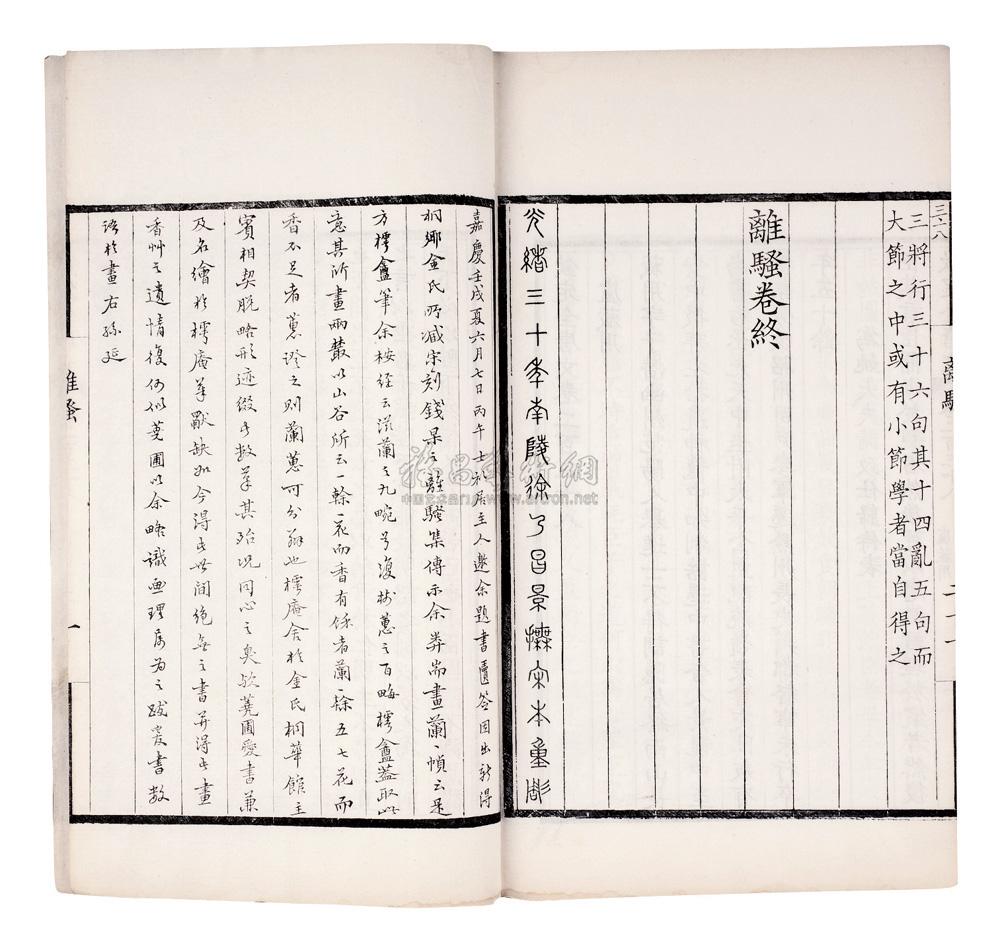 三六八
三將行三十六句其十四亂五句而
大節之中或有小節學者當自得之
離騷卷終
光緒三十年南陵徐乃昌景橅宋本重彫
離騷
嘉慶壬戌夏六月七日丙午士禮居主人邀余題書匵簽因出新得
桐鄉金氏所藏宋刻錢杲之離騷集傳示余葉耑畫蘭一幀云是
方樗盦筆余桉經云滋蘭之九畹兮復樹蕙之百畮樗盦蓋取此
意其所畫兩叢以山谷所云一榦一花而香有餘者蘭一榦五七花而
香不足者蕙證之則蘭蕙可分矣也樗庵舍於金氏桐華館主
賓相契脫略形迹綴此數筆其殆況同心之臭歟蕘圃愛書兼
及名繪於樗庵筆獸缺如今得此世間絕無之書并得此畫
香艸之遺情復何似蕘圃以余略識畫理屬為之跋爰書數
語於畫右孫延
離騷
一
中国艺术品 www.artron.net